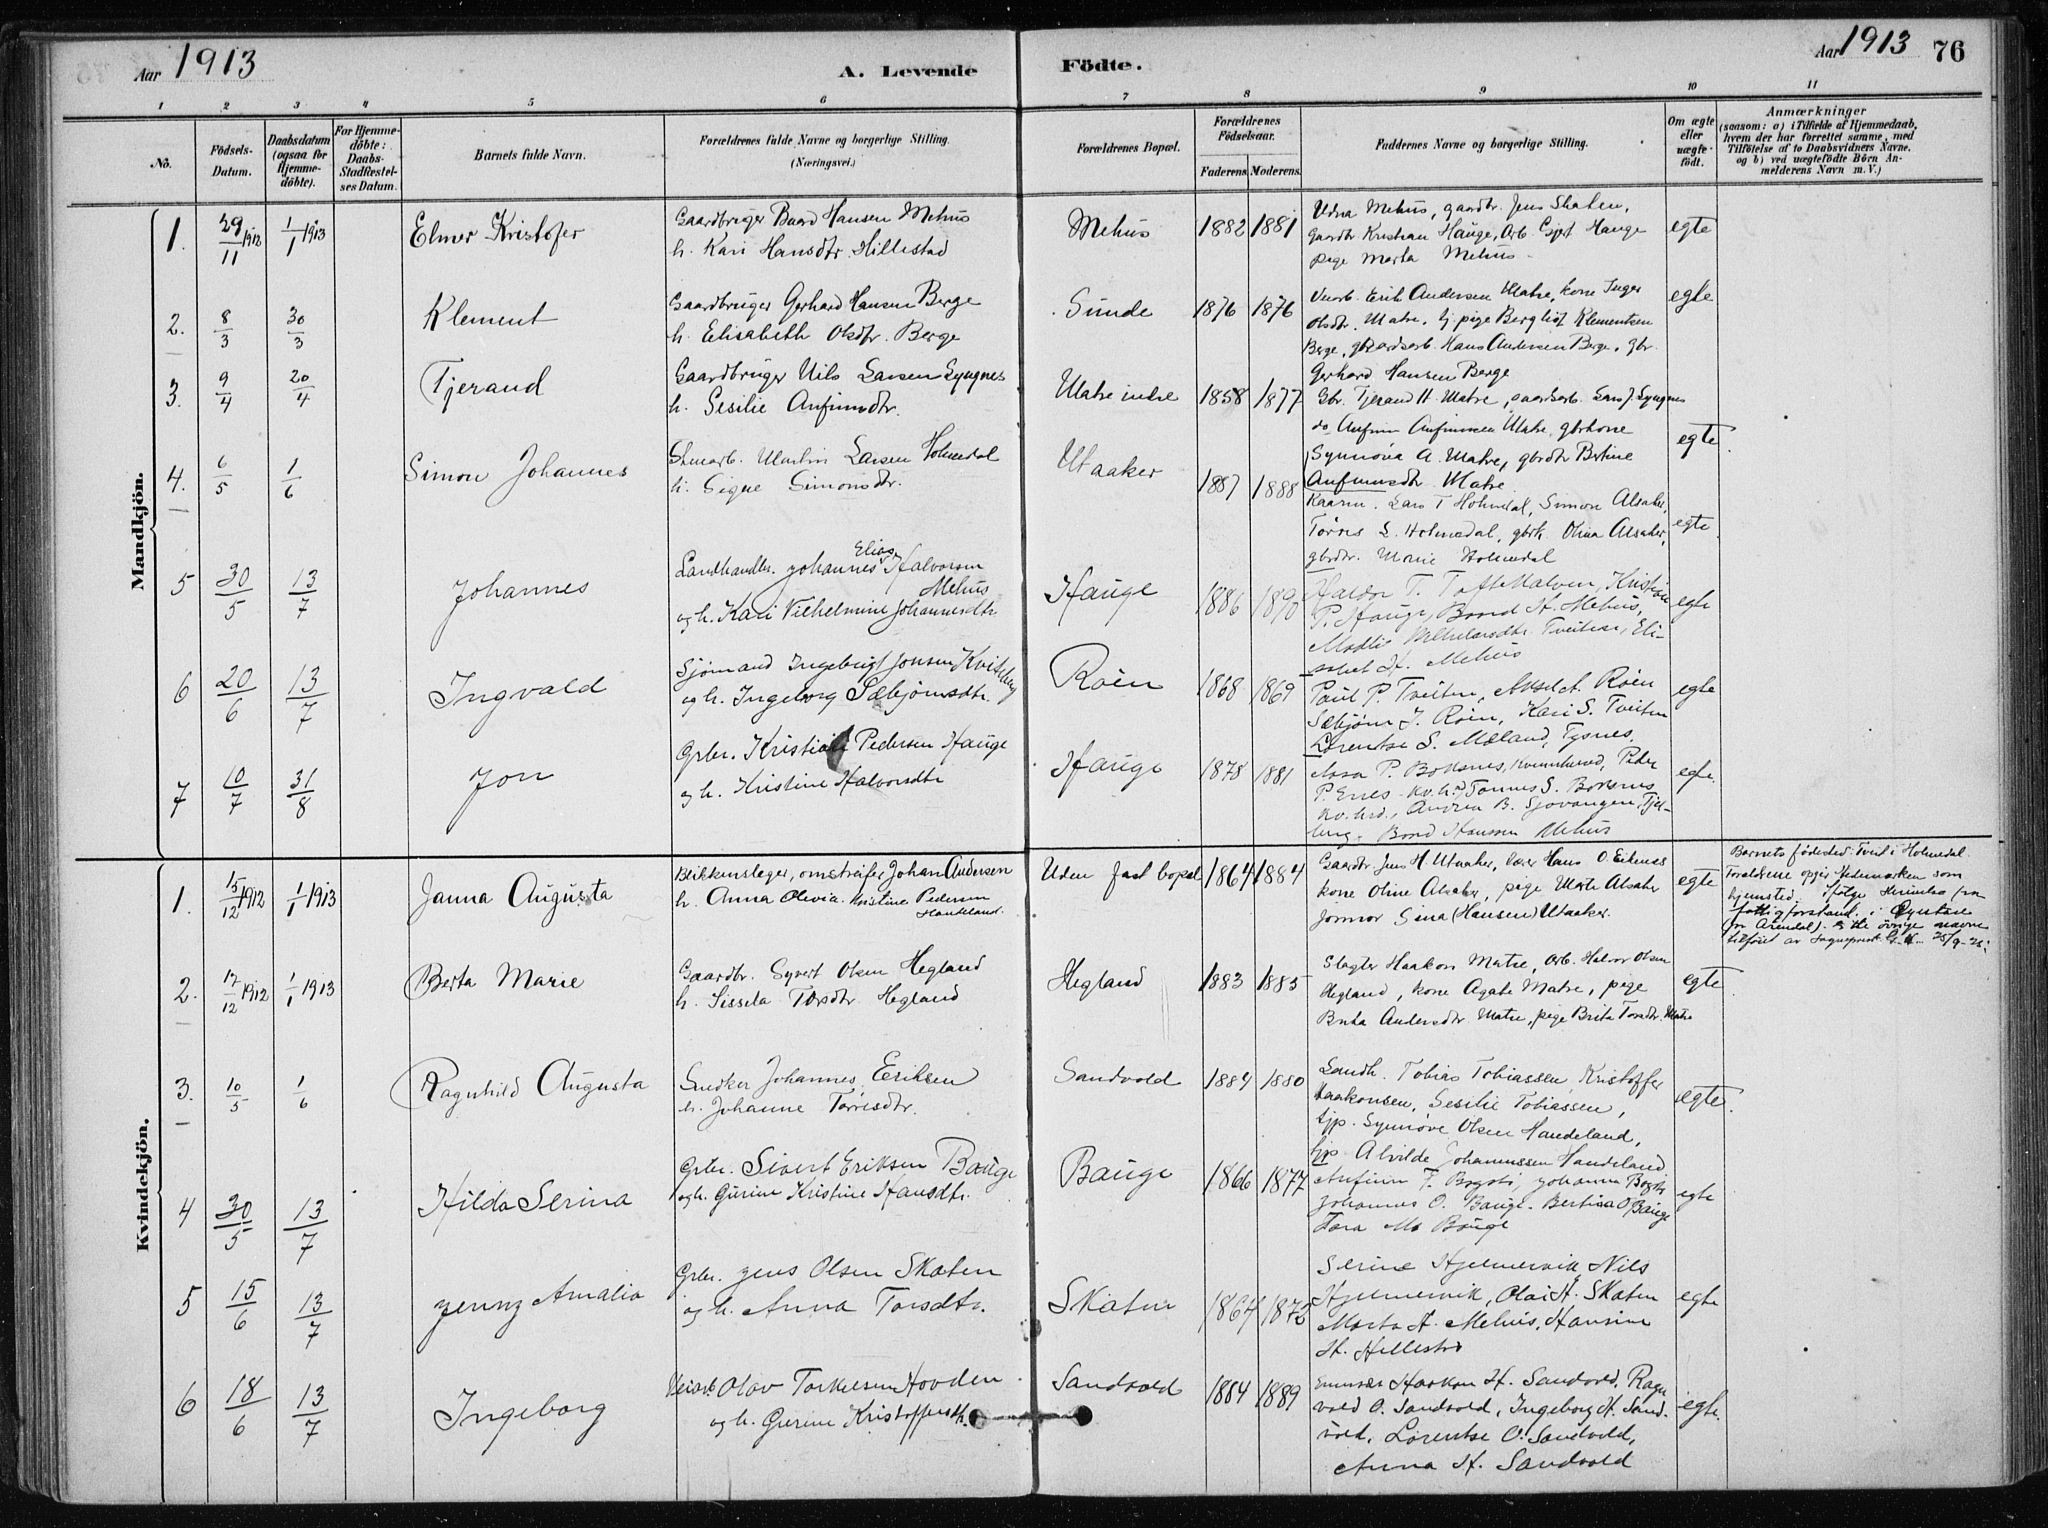 Aar 1913
A. Levende Födte.
Aar 1913 76
1 2 3 4 5 6 7 8 9 10 11
No.
Födsels-
Datum.
Daabsdatum
(ogsaa for
Hjemme-
döbte).
For Hjemme-
döbte:
Daabs-
Stadfæstel-
ses Datum.
Barnets fulde Navn.
Forældrenes fulde Navne og borgerlige Stilling.
(Næringsvei.)
Forældrenes Bopæl.
Forældrenes
Fødselsaar.
Faderens. Moderens.
Faddernes Navne og borgerlige Stilling.
Om ægte
eller
uægte
født.
Anmærkninger
(saasom: a) i Tilfælde af Hjemmedaab,
hvem der har forrettet samme, med
Tilföielse af to Daabsvidners Navne,
og b) ved uægtefödte Börn An-
melderens Navn m. V.)
Mandkjön.
1. 29/11 1912 1/1 1913 Elmer Kristofer
Gaardbruger Baard Hansen Mehus
h. Kari Hansdtr. Hillestad
Mehus 1882 1881
Edna Mehus, gaardbr. Jens Skaten,
Gaardbr Kristian Hauge, Arb. Hauge
pige Marta Mehus
egte
2. 8/3 30/3 Klement
Gaardbruger Gerhard Hansen Berge
h. Elisabeth Olsdtr. Berge
Sunde 1876 1876
Erik Andersen Matre, kone Inger
Olsdtr. Matre, tj. pige Bergliot Klementsen
Berge, gaardsarb. Hans Andersen Berge, gbr.
Gerhard Hansen Berge
egte
3. 9/4 20/4 Tjerand
Gaardbruger Nils Larsen Lyngnes
h. Sesilie Anfinnsdtr.
Matre indre 1858 1877
Gbr. Tjerand H. Matre, gaardsarb. Lars J. Lyngnes
do Anfinn Anfinnsen Matre, gbrkone
Synnöva A. Matre, gbrdtr Bertine
Anfinnsdtr. Matre
egte
4. 6/5 1/6 Simon Johannes
Martin Larsen Holmedal
h. Signe Simonsdtr.
Utaaker 1887 1888
Kaarm. Lars T Holmedal, Simon Alsaker,
Tørres L. Holmedal, gbrk. Olina Alsaker,
gbrdtr. Marie Holmedal
egte
5 30/5 13/7 Johannes
Landhandler. Johannes Elias Halvorsen
Mehus
og h. Kari Vilhelmine Johannesdtr.
Hauge 1886 1890
Haldor T. Toftemalven, Kristian
P. Hauge, Baard H. Mehus,
Madli Vilhelmsdtr. Tveiten, Eli-
sabet H. Mehus
egte
6 20/6 13/7 Ingvald
Sjømand Ingebrigt Jonsen Kvitberg
og h. Ingeborg Sæbjørnsdtr.
Røen 1868 1869
Paul P. Tveiten, Aksel A. Røen
Sæbjørn J. Røen, Kari S. Tveiten
Lorentse S. Mæland, Tysnes.
egte
7 10/7 31/8 Jon
Grbr. Kristian Pedersen Hauge
og h. Kristine Halvorsdtr
Hauge 1878 1881
Aasa P. Boksnes, Kvinnherad, Peder
P. Enes Kv.h.d, Tonnes S. Boksnes
Kv.hrd., Andrea B. Sjovangen, Tjel-
berg, Bord Hanssen Mehus
egte.
Kvindekjön.
1. 15/12 1912 1/1 1913 Janna Augusta
Blikkenslager, omstreifer Johan Andersen
h. Anna Olevia Kristine Pedersen
Haukeland.
Uden fast bopæl 1864 1884
Gaardbr. Jens H. Utaaker, lærer Hans O. Eikenes
kone Oline Alsaker, pige Marta Alsaker
Jomnor Sina (Hansen) Utaaker.
egte
Barnets fødested: Tveit i Holmedal
Foraldrene opgir Hedemarken som
hjemsted. Ifølge skrivelse fra
fattigforstand. i Øyestad
(pr Arendal). Er de övrige navne
tilföiet av Sogneprest 25/9-25.
2. 17/12 1912 1/1 1913 Berta Marie
Gaardbr. Syvert Olsen Hegland
h. Sissela Torsdtr Hegland
Hegland 1883 1885
Slagter Haakon Matre, Arb. Halvor Olsen
Hegland, kone Agate Matre, pige
Brita Andersdtr. Matre, pige Brita Torsdtr. Matre
egte
3. 10/5 1/6 Ragnhild Augusta
Snedker Johannes Eriksen
h. Johanne Tørresdtr.
Sandvold 1884 1880
Landh. Tobias Tobiassen, Kristoffer
Haakonsen, Sesilie Tobiassen,
tjp. Synnöve Olsen Handeland,
tjp. Alvilde Johannessen Handeland
egte.
4 30/5 13/7 Hilda Serina
Grbr. Sivert Eriksen Bauge
og h. Gurine Kristine Hansdtr.
Bauge 1866 1877
Anfinn T. Bogsti, Johanna Bogsti
Johannes O. Bauge. Bertina O. Bauge
Tora M. Bauge
egte
5 15/6 13/7 Jenny Amalia
Grbr. Jens Olsen Skaten
og h. Anna Torsdtr.
Skaten 1864 1875
Serine Hjelmervik Nils
Hjelmervik, Olai H. Skaten
Marta H. Mehus, Hansine
H. Hillestad
egte
6 18/6 13/7 Ingeborg
Veiarb. Olav Torkelsen Hovden
og h. Gurine Kristoffersdtr.
Sandvold 1884 1889
Haakon H. Sandvold, Ragn-
vald O. Sandvold, Ingeborg H. Sand-
vold, Lorentse O. Sandvold,
Anna H. Sandvold
egte.